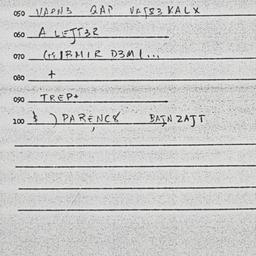 050 VAPN3 QAP VRTS3 KALX
060 A LEJT32
070 D3M(...
080 +
090 TREP+
100 $ ) PARENC8 BAJNZAJT